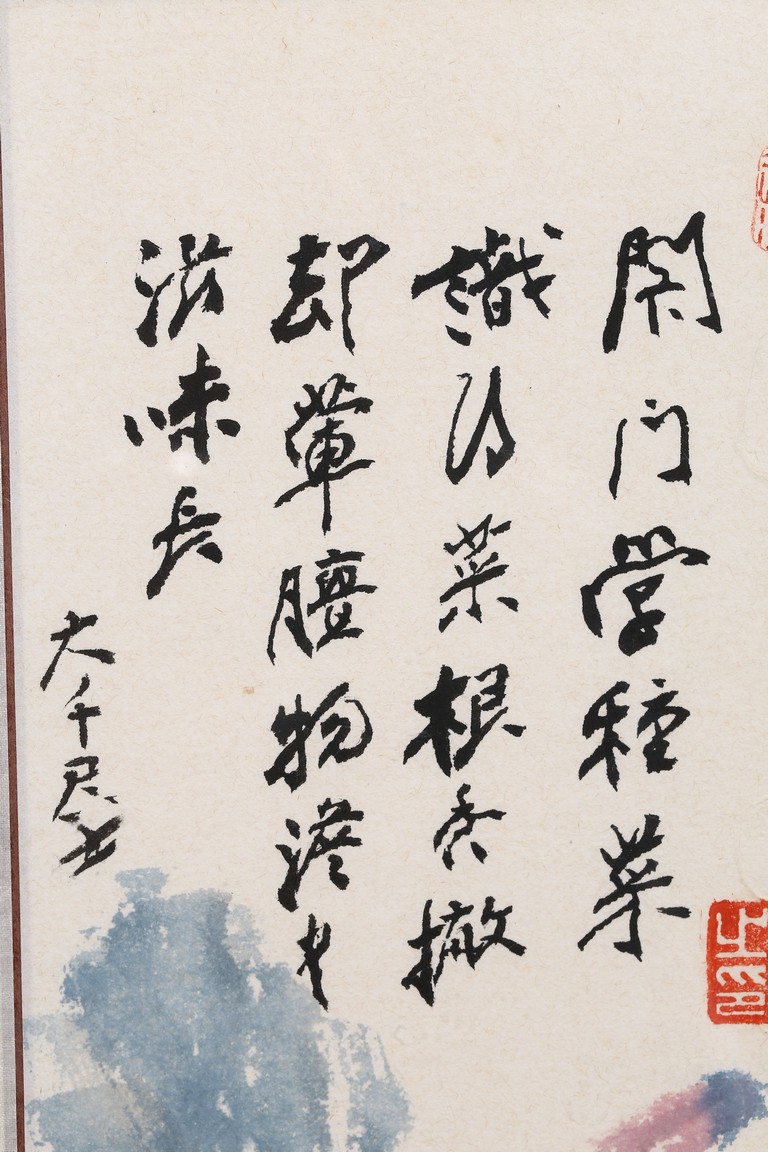 閑门学種菜
識得菜根香撤
却葷膻物澹中
滋味長
大千居士